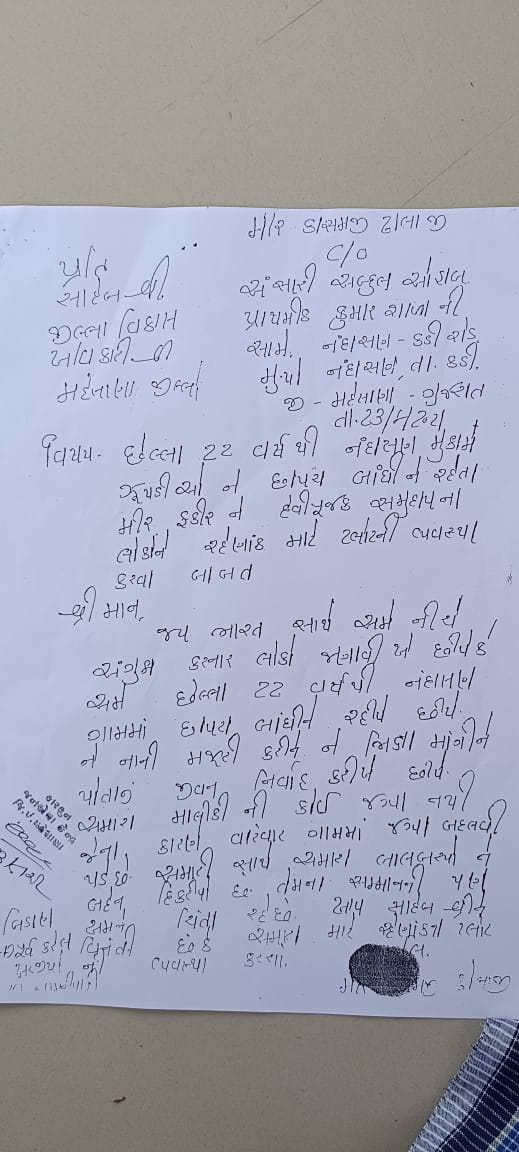 મીર કાસમજી ઢાલાજી
C/O
પ્રતિ
સાહેબ શ્રી.
જીલ્લા વિકાસ
અધિકારી શ્રી
મહેસાણા જીલ્લો
અંસારી અબ્દુલ
પ્રાથમીક કુમાર શાળા ની
સામે, નંદાસણ - કડી રોડ
મુ.પો નંદાસણ, તા. કડી.
જી - મહેસાણા - ગુજરાત
તા.23/
વિષય- છેલ્લા 22 વર્ષ થી નંદાસણ મુકામે
ઝૂંપડીઓ ને છાપરા બાંધી ને રહેતા
મીર, ફકીર ને દેવીપૂજક સમુદાયના
લોકોને રહેણાંક માટે પ્લોટની વ્યવસ્થા
કરવા બાબત
શ્રીમાન,
જય ભારત સાથે અમે નીચે
અંગુઠા કરનાર લોકો જણાવીએ છીએ કે
અમે છેલ્લા 22 વર્ષથી નંદાસણ
ગામમાં છાપરા બાંધીને રહીએ છીએ.
નાની મજૂરી કરીને ને ભિક્ષા માંગીને
પોતાનું જીવન નિર્વાહ કરીએ છીએ.
અમારા માલીકી ની કોઈ જગ્યા નથી
જેના કારણે વારંવાર ગામમાં જગ્યા બદલવી
પડે છે. અમારી સાથે અમારા બાલબચ્ચા ને
બહેન, દિકરીયો છે. તેમના સન્માનની પણ
અમને ચિંતા રહે છે. આપ સાહેબ શ્રીને
વિનંતી છે કે અમારા માટે રહેણાંકના પ્લોટ
ની વ્યવસ્થા કરશો.